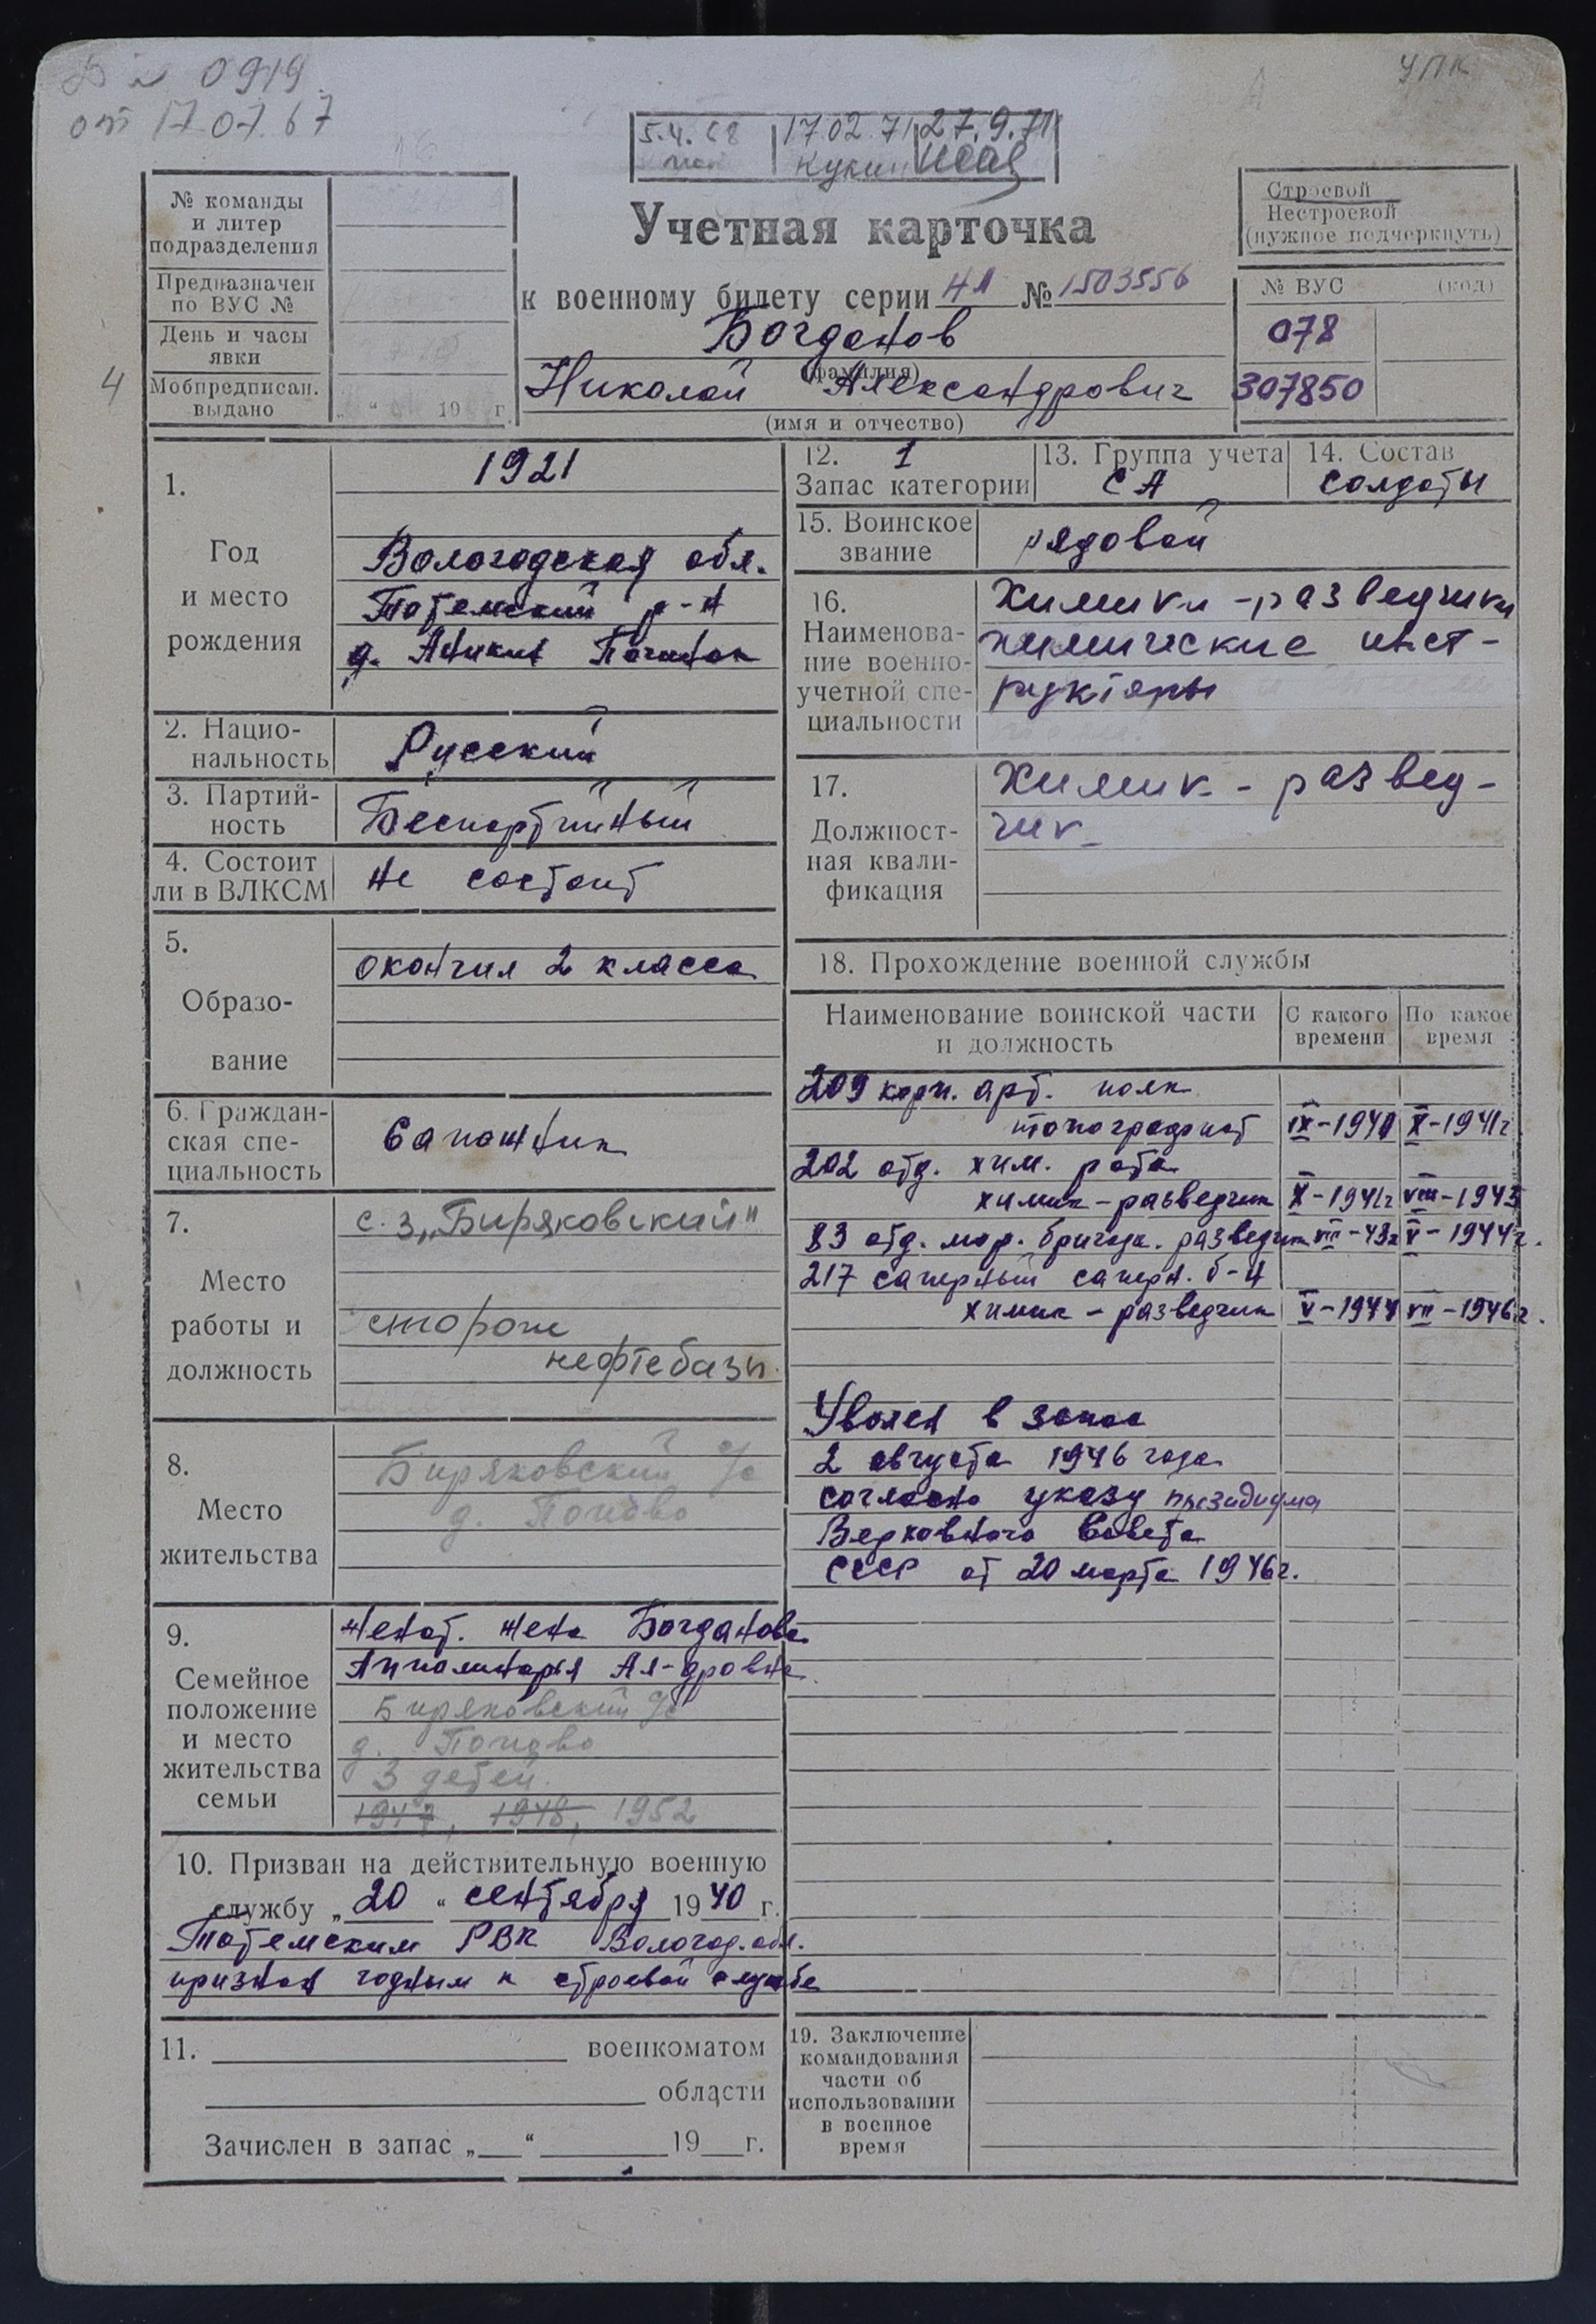 0919
от 17.07.67
УПК
5.4.68 17.02.71 27.9.71
Кукин
№ команды
и литер
подразделения
Предназначен
по ВУС №
День и часы
явки
Мобпредписан.
выдано
„ “ 19 г.
4
Учетная карточка
к военному билету серии НЛ № 1503556
Богданов
(фамилия)
Николай Александрович
(имя и отчество)
Строевой
Нестроевой
(нужное подчеркнуть)
№ ВУС (код)
078
307850
1.
Год
и место
рождения
1921
Вологодская обл.
Тотемский р-н
д. Аникин Починок
2. Нацио-
нальность
Русский
3. Партий-
ность
Беспартийный
4. Состоит
ли в ВЛКСМ
не состоит
5.
Образо-
вание
окончил 2 класса
6. Граждан-
ская спе-
циальность
Сапожник
7.
Место
работы и
должность
с. з „Биряковский"
сторож
нефтебазы.
8.
Место
жительства
Биряковский с/с
д.
9.
Семейное
положение
и место
жительства
семьи
женат. жена Богданова
Апполинарья Ал-дровна
Биряковский с/с
д.
3 детей.
1947, 1948, 1952
10. Призван на действительную военную
службу „20“ сентября 1940 г.
Тотемским РВК Вологод. обл.
признан годным к строевой службе
11. военкоматом
области
Зачислен в запас „ “ 19 г.
12. 1
Запас категории
13. Группа учета
СА
14. Состав
солдаты
15. Воинское
звание
рядовой
16.
Наименова-
ние военно-
учетной спе-
циальности
Химики-разведчики
химические инст-
рукторы
17.
Должност-
ная квали-
фикация
Химик-развед-
чик
18. Прохождение военной службы
Наименование воинской части
и должность
С какого
времени
По какое
время
209 корп. арт. полк
топографист IX-1940 X-1941г
202 отд. хим. рота
химик-разведчик X-1941г VIII-1943
83 отд. мор. бригада. разведчик VIII-43г V-1944г.
217 саперный саперн. б-н
химик-разведчик V-1944 VII-1946г.
Уволен в запас
2 августа 1946 года
согласно указу президиума
Верховного Совета
СССР от 20 марта 1946г.
19. Заключение
командования
части об
использовании
в военное
время